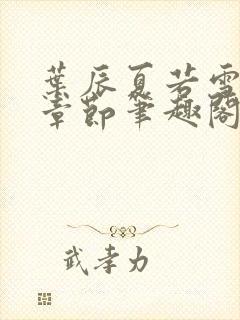 葉辰夏若雪
章節筆趣閣
武孝力